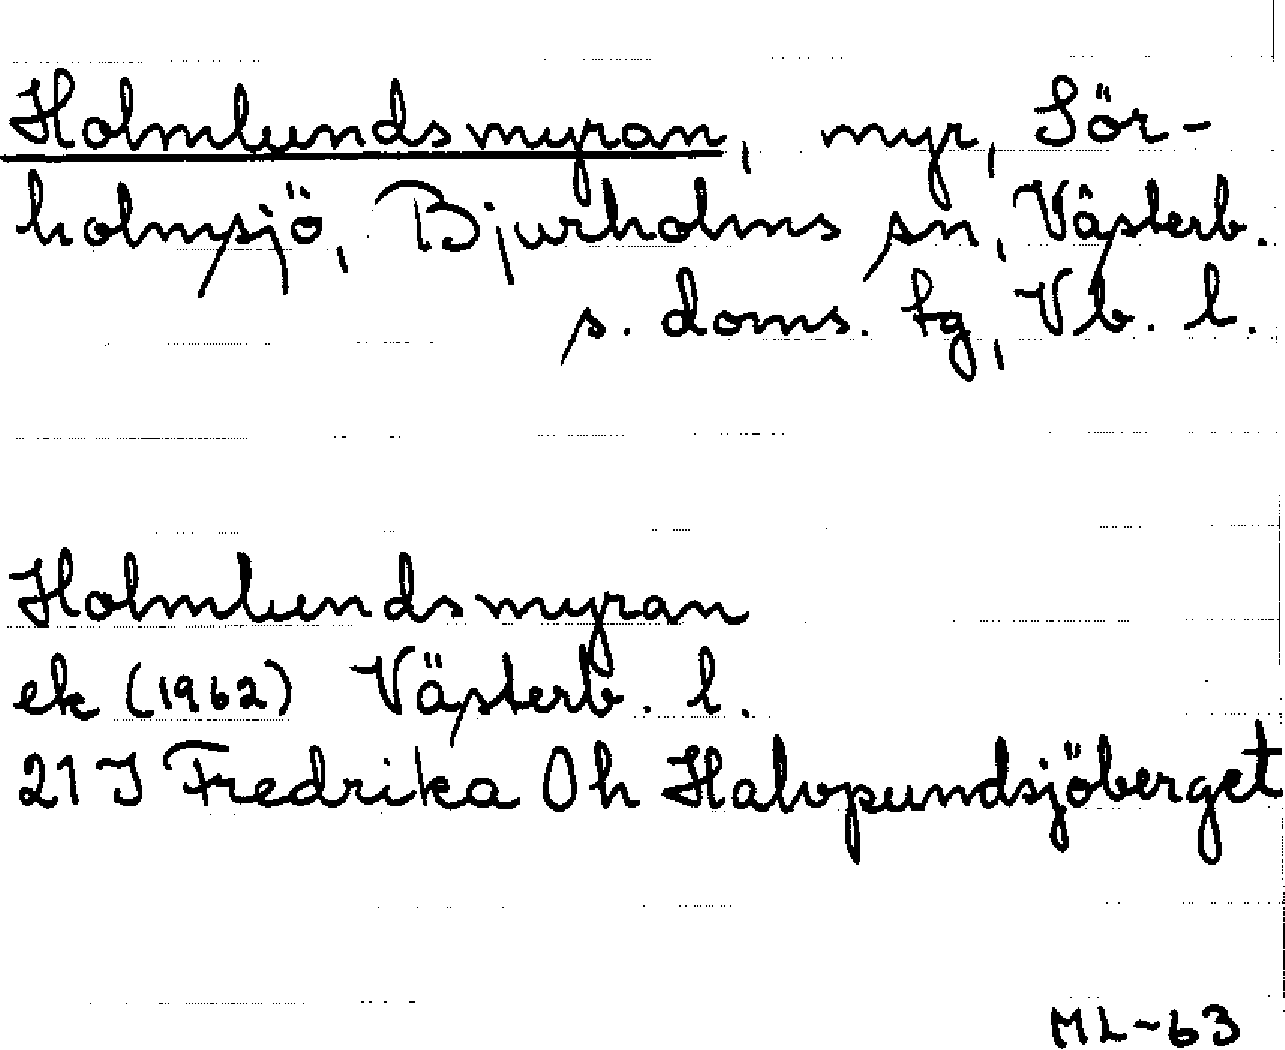 Holmlundsmyran, myr, Sör-
holmsjö, Bjurholms sn, Västerb.
s. doms. tg, Vb. l.
Holmlundsmyran
ek (1962) Västerb. l.
21 J Fredrika 0h Halvpundsjöberget
ML-63